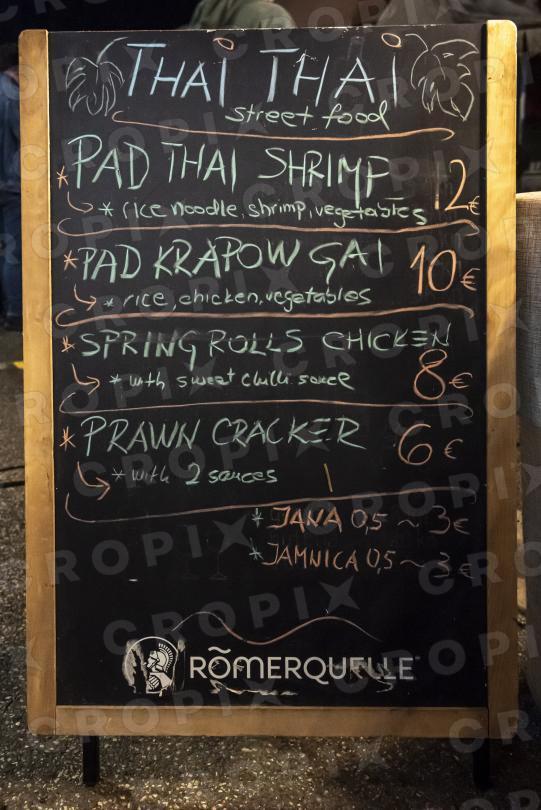 THAI THAI
street food
* PAD THAI SHRIMP 12€
* rice noodle, shrimp, vegetables
* PAD KRAPOW GAI 10€
* rice, chicken, vegetables
* SPRING ROLLS CHICKEN 8€
* with sweet chilli sauce
* PRAWN CRACKER 6€
* with 2 sauces
* JANA 0,5 ~ 3€
* JAMNICA 0,5 ~ 3€
RÖMERQUELLE
CROPIX